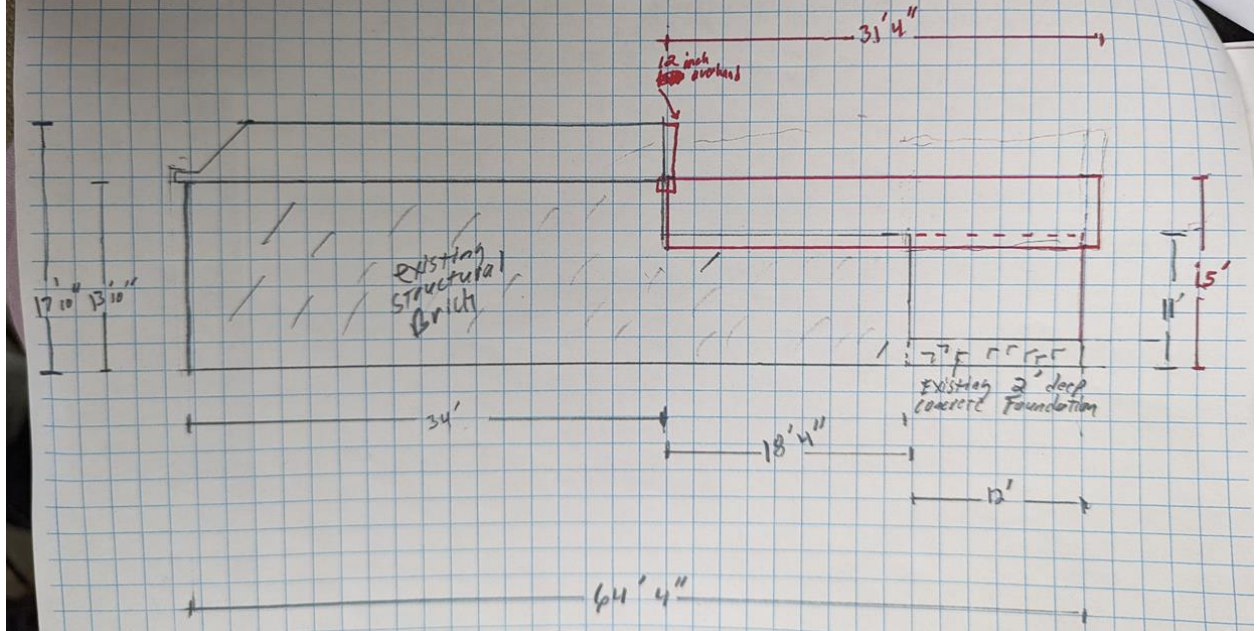 31'4"
12 inch
overhand
17'10"
13'10"
existing
structural
Brick
15'
11'
Existing 2' deep
concrete Foundation
34'
18'4"
12'
64'4"